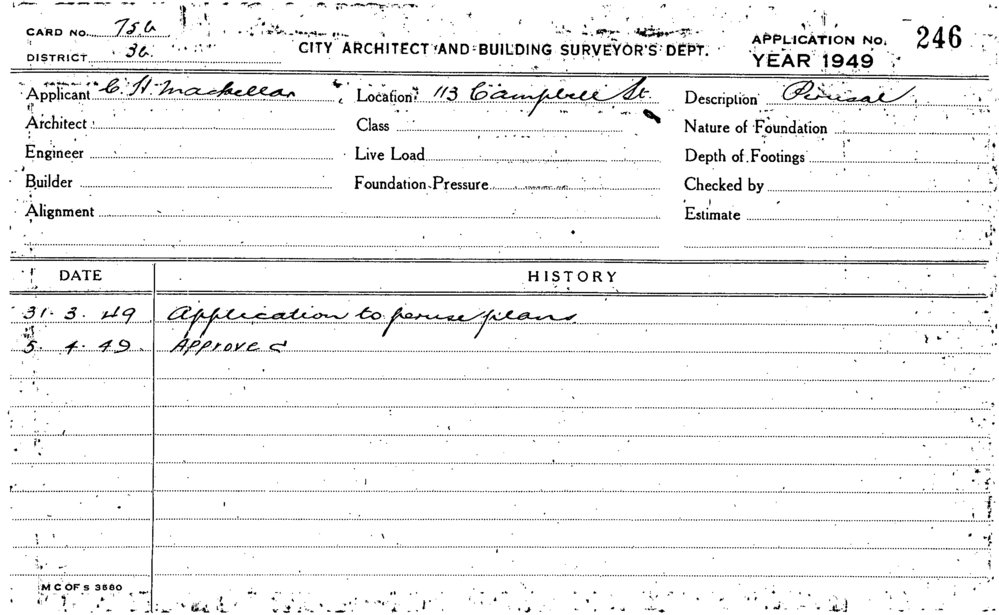 CARD No. 756
DISTRICT 36
CITY ARCHITECT AND BUILDING SURVEYOR'S DEPT.
APPLICATION No. 246
YEAR 1949
Applicant C. H. Mackellar Location 113 Campbell St. Description Perusal
Architect Class Nature of Foundation
Engineer Live Load Depth of Footings
Builder Foundation Pressure Checked by
Alignment Estimate
DATE HISTORY
31. 3. 49 Application to peruse plans
5. 4. 49 Approved
M C OF S 3580